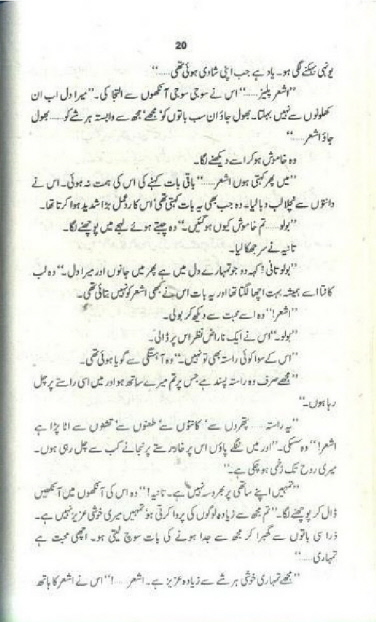 20
یونہی بہکنے لگی ہو۔ یاد ہے جب اپنی شادی ہوئی تھی......"
"اشعر پلیز......" اس نے سوجی سوجی آنکھوں سے التجا کی۔ "میرا دل اب ان
کھلونوں سے نہیں بہلتا۔ بھول جاؤ ان سب باتوں کو مجھے مجھ سے وابستہ ہر شے کو...... بھول
جاؤ اشعر......"
وہ خاموش ہو کر اسے دیکھنے لگا۔
"میں پھر کہتی ہوں اشعر......" باقی بات کہنے کی اس کی ہمت نہ ہوئی۔ اس نے
دانتوں سے نچلا لب دبا لیا۔ وہ جب بھی یہ بات کہتی تھی' اس کا ردعمل بڑا شدید ہوا کرتا تھا۔
"بولو...... تم خاموش کیوں ہو گئیں۔" وہ چبھتے ہوئے لہجے میں پوچھنے لگا۔
تانیہ نے سر جھکا لیا۔
"بولو تانی! کہہ دو جو تمہارے دل میں ہے پھر میں جانوں اور میرا دل۔" وہ لب
کاٹتا اسے ہمیشہ بہت اچھا لگتا تھا اور یہ بات اس نے کبھی اشعر کو نہیں بتائی تھی۔
"اشعر!" وہ اسے محبت سے دیکھ کر بولی۔
"بولو۔" اس نے ایک ناراض نظر اس پر ڈالی۔
"اس کے سوا کوئی راستہ بھی تو نہیں۔" وہ آہستگی سے گویا ہوئی تھی۔
"مجھے صرف وہ راستہ پسند ہے جس پر تم میرے ساتھ ہو اور میں اسی راستے پر چل
رہا ہوں۔"
"یہ راستہ...... پتھروں سے' کانٹوں سے' طعنوں سے' تشنوں سے اٹا پڑا ہے
اشعر!" وہ سسکی۔ "اور میں ننگے پاؤں اس پر خار رستے پر نجانے کب سے چل رہی ہوں۔
میری روح تک زخمی ہو چکی ہے۔"
"تمہیں اپنے ساتھی پر بھروسہ نہیں ہے۔ تانیہ!" وہ اس کی آنکھوں میں آنکھیں
ڈال کر پوچھنے لگا۔ "تم مجھ سے زیادہ لوگوں کی پروا کرتی ہو' تمہیں میری خوشی عزیز نہیں ہے۔
ذرا سی باتوں سے گھبرا کر مجھ سے جدا ہونے کی بات سوچ لیتی ہو۔ اچھی محبت ہے
تمہاری......"
"مجھے تمہاری خوشی ہر شے سے زیادہ عزیز ہے۔ اشعر......!" اس نے اشعر کا ہاتھ